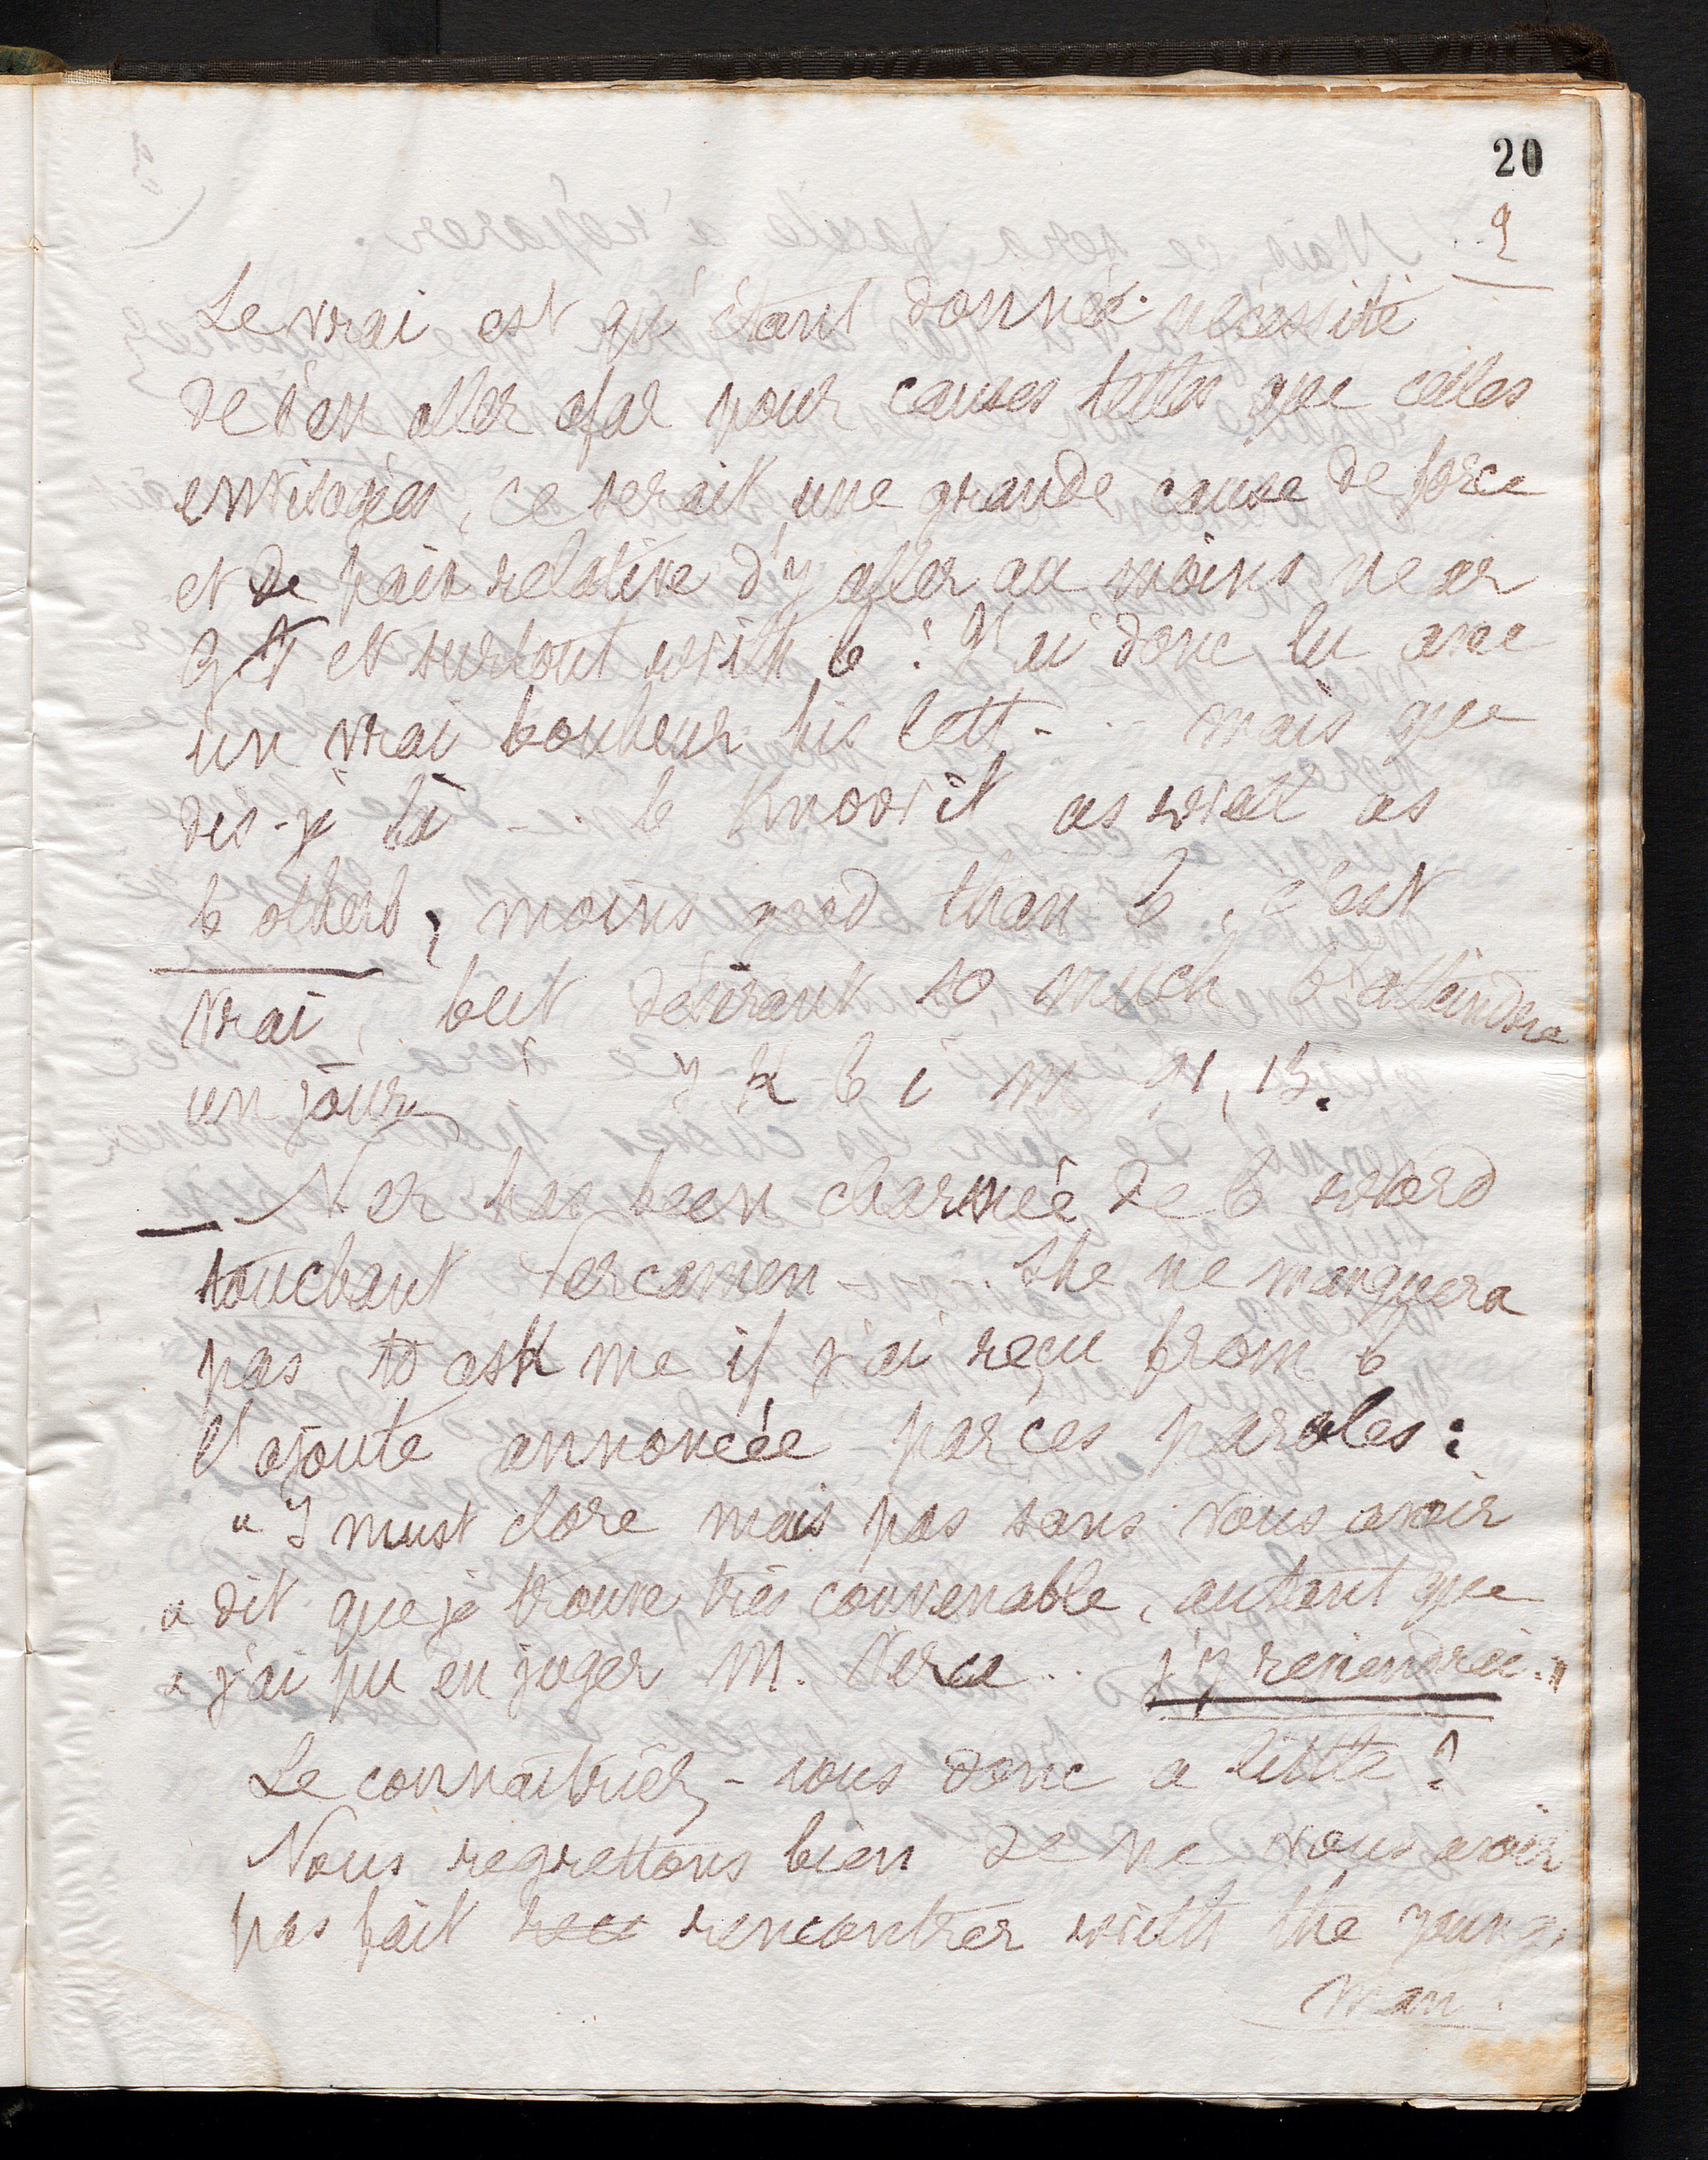 20
2
Le vrai est qu'étant donnée nécessité
de s'en aller afar pour causes telles que celles
envisagées, ce serait une grande cause de force
et de paix relative d'y aller au moins near
et surtout with b : J'ai donc lu avec
un vrai bonheur his lett - .. mais que
dis-je là - .. b know it as well as
b others, moins good than b, c'est
vrai, but désirant so much b atteindre
un jour y k b i m 91, 13.
Ver has been charmée de b word
touchant Vercamen - . She ne manquera
pas to ask me if j'ai reçu from b
l'ajoute annoncée par ces paroles :
" I must clore mais pas sans vous avoir
" dit que je trouve très convenable, autant que
" j'ai pu en juger M. Verca .. j'y reviendrai."
Le connaîtriez-vous donc a little ?
Nous regrettons bien de ne vous avoir
pas fait rencontrer with the young
man.